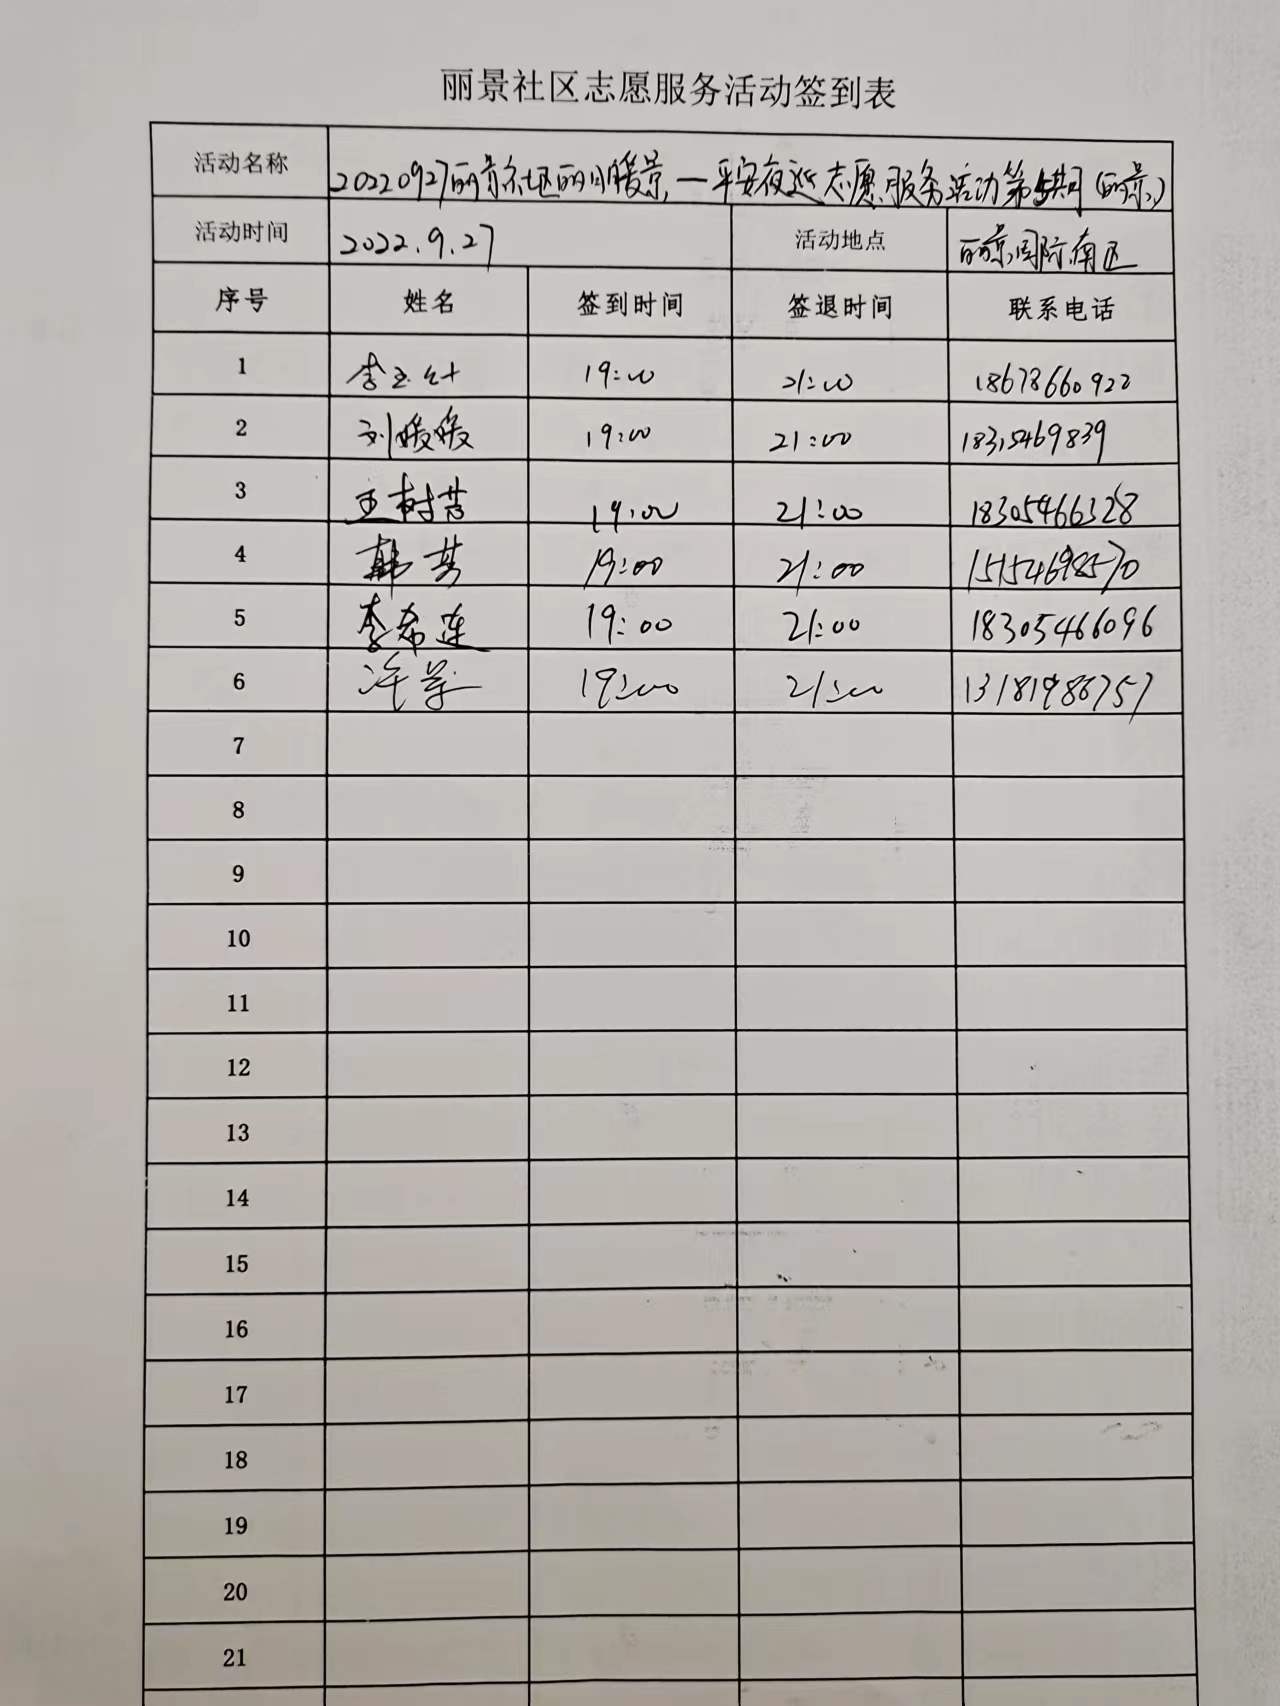 丽景社区志愿服务活动签到表
活动名称 20220927丽景社区丽日暖景—平安夜巡志愿服务活动第5期(丽景)
活动时间 2022.9.27 活动地点 丽景国际南区
序号 姓名 签到时间 签退时间 联系电话
1 李玉红 19:00 21:00 18678660922
2 刘暖暖 19:00 21:00 18315469839
3 王树芳 19:00 21:00 18305466328
4 韩芬 19:00 21:00 15154698570
5 李希莲 19:00 21:00 18305466096
6 19:00 21:00 13181986757
7
8
9
10
11
12
13
14
15
16
17
18
19
20
21